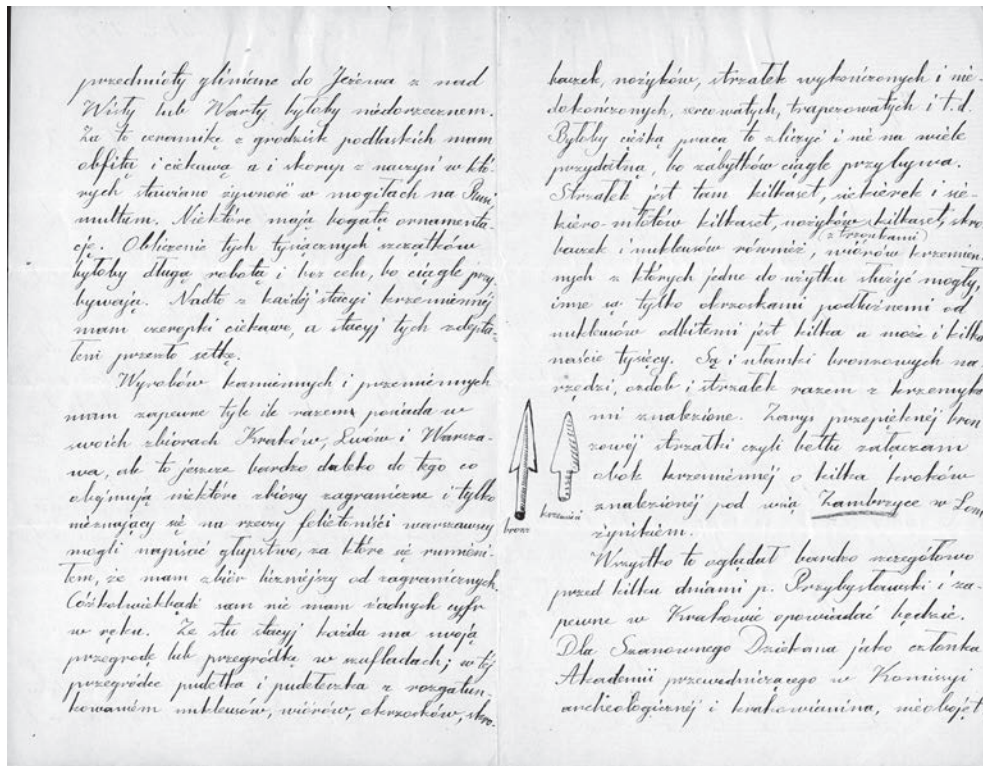 przedmioty gliniane do Jeżewa z nad
Wisły lub Warty byłoby niedorzecznem.
Za to ceramikę z grodzisk podlaskich mam
obfitą i ciekawą a i skorup z naczyń w któ-
rych stawiano żywność w mogiłach na Rusi
multum. Niektóre mają bogatą ornamenta-
cję. Obliczenie tych tysiącznych szczątków
byłoby długą robotą i bez celu, bo ciągle przy
bywają. Nadto z każdej stacyi krzemiennéj
mam czerepki ciekawe, a stacyj tych zdepta-
łem przeszło setkę.
Wyrobów kamiennych i krzemiennych
mam zapewne tyle ile razem posiada w
swoich zbiorach Kraków, Lwów i Warsza-
wa, ale to jeszcze bardzo daleko do tego co
obejmują niektóre zbiory zagraniczne i tylko
nieznający się na rzeczy felietoniści warszawscy
mogli napisać głupstwo, za które się rumieni-
łem, że mam zbiór liczniejszy od zagranicznych.
Cóżkolwiekbądź sam nie mam żadnych cyfr
w ręku. Ze stu stacyj każda ma swoją
przegrodę lub przegródkę w szufladach; w téj
przegródce pudełka i pudełeczka z rozgatun-
kowaniem nukleusów, wiórów, okrzosków, skro-
baczek, nożyków, strzałek wykończonych i nie-
dokończonych, sercowatych, trapezowatych i t.d.
Byłoby ciężką pracą to zliczyć i nie na wiele
przydatną, bo zabytków ciągle przybywa.
Strzałek jest tam kilkaset, siekierek i sie-
kiero-młotów kilkaset, nożyków kilkaset, skro
(z trzonkami)
baczek i nukleusów również, wiórów krzemien
nych z których jedne do użytku służyć mogły,
inne są tylko okrzoskami podłużnemi od
nukleusów odbitemi jest kilka a może i kilka
naście tysięcy. Są i ułamki bronzowych na-
rzędzi, ozdób i strzałek razem z krzemyka
mi znalezione. Zarys przepięknéj bron
zowéj strzałki czyli bełtu załączam
obok krzemiennéj o kilka kroków
znalezionéj pod wsią Zambrzyce w Łom
żyńskiem.
bronz
krzemień
Wszystko to oglądał bardzo szczegółowo
przed kilku dniami p. Przybysławski i za-
pewne w Krakowie opowiadać będzie.
Dla Szanownego Dziekana jako członka
Akademii przewodniczącego w Komisyi
archeologicznéj i krakowianina, nieobojęt